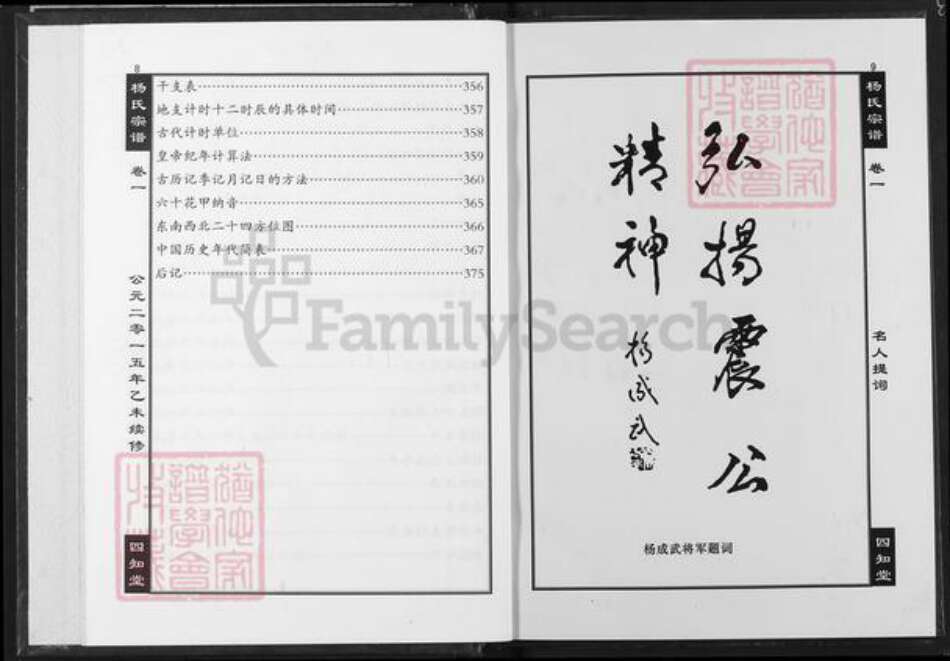 8
杨氏宗谱
卷一
公元二零一五年乙未续修
四知堂
干支表356
地支计时十二时辰的具体时间357
古代计时单位358
皇帝纪年计算法359
古历记季记月记日的方法360
六十花甲纳音365
东南西北二十四方位图366
中国历史年代简表367
后记375
FamilySearch
9
杨氏宗谱
卷一
名人提词
四知堂
弘揚震公
精神
杨成武
杨成武将军题词
猶他家
譜學會
收藏